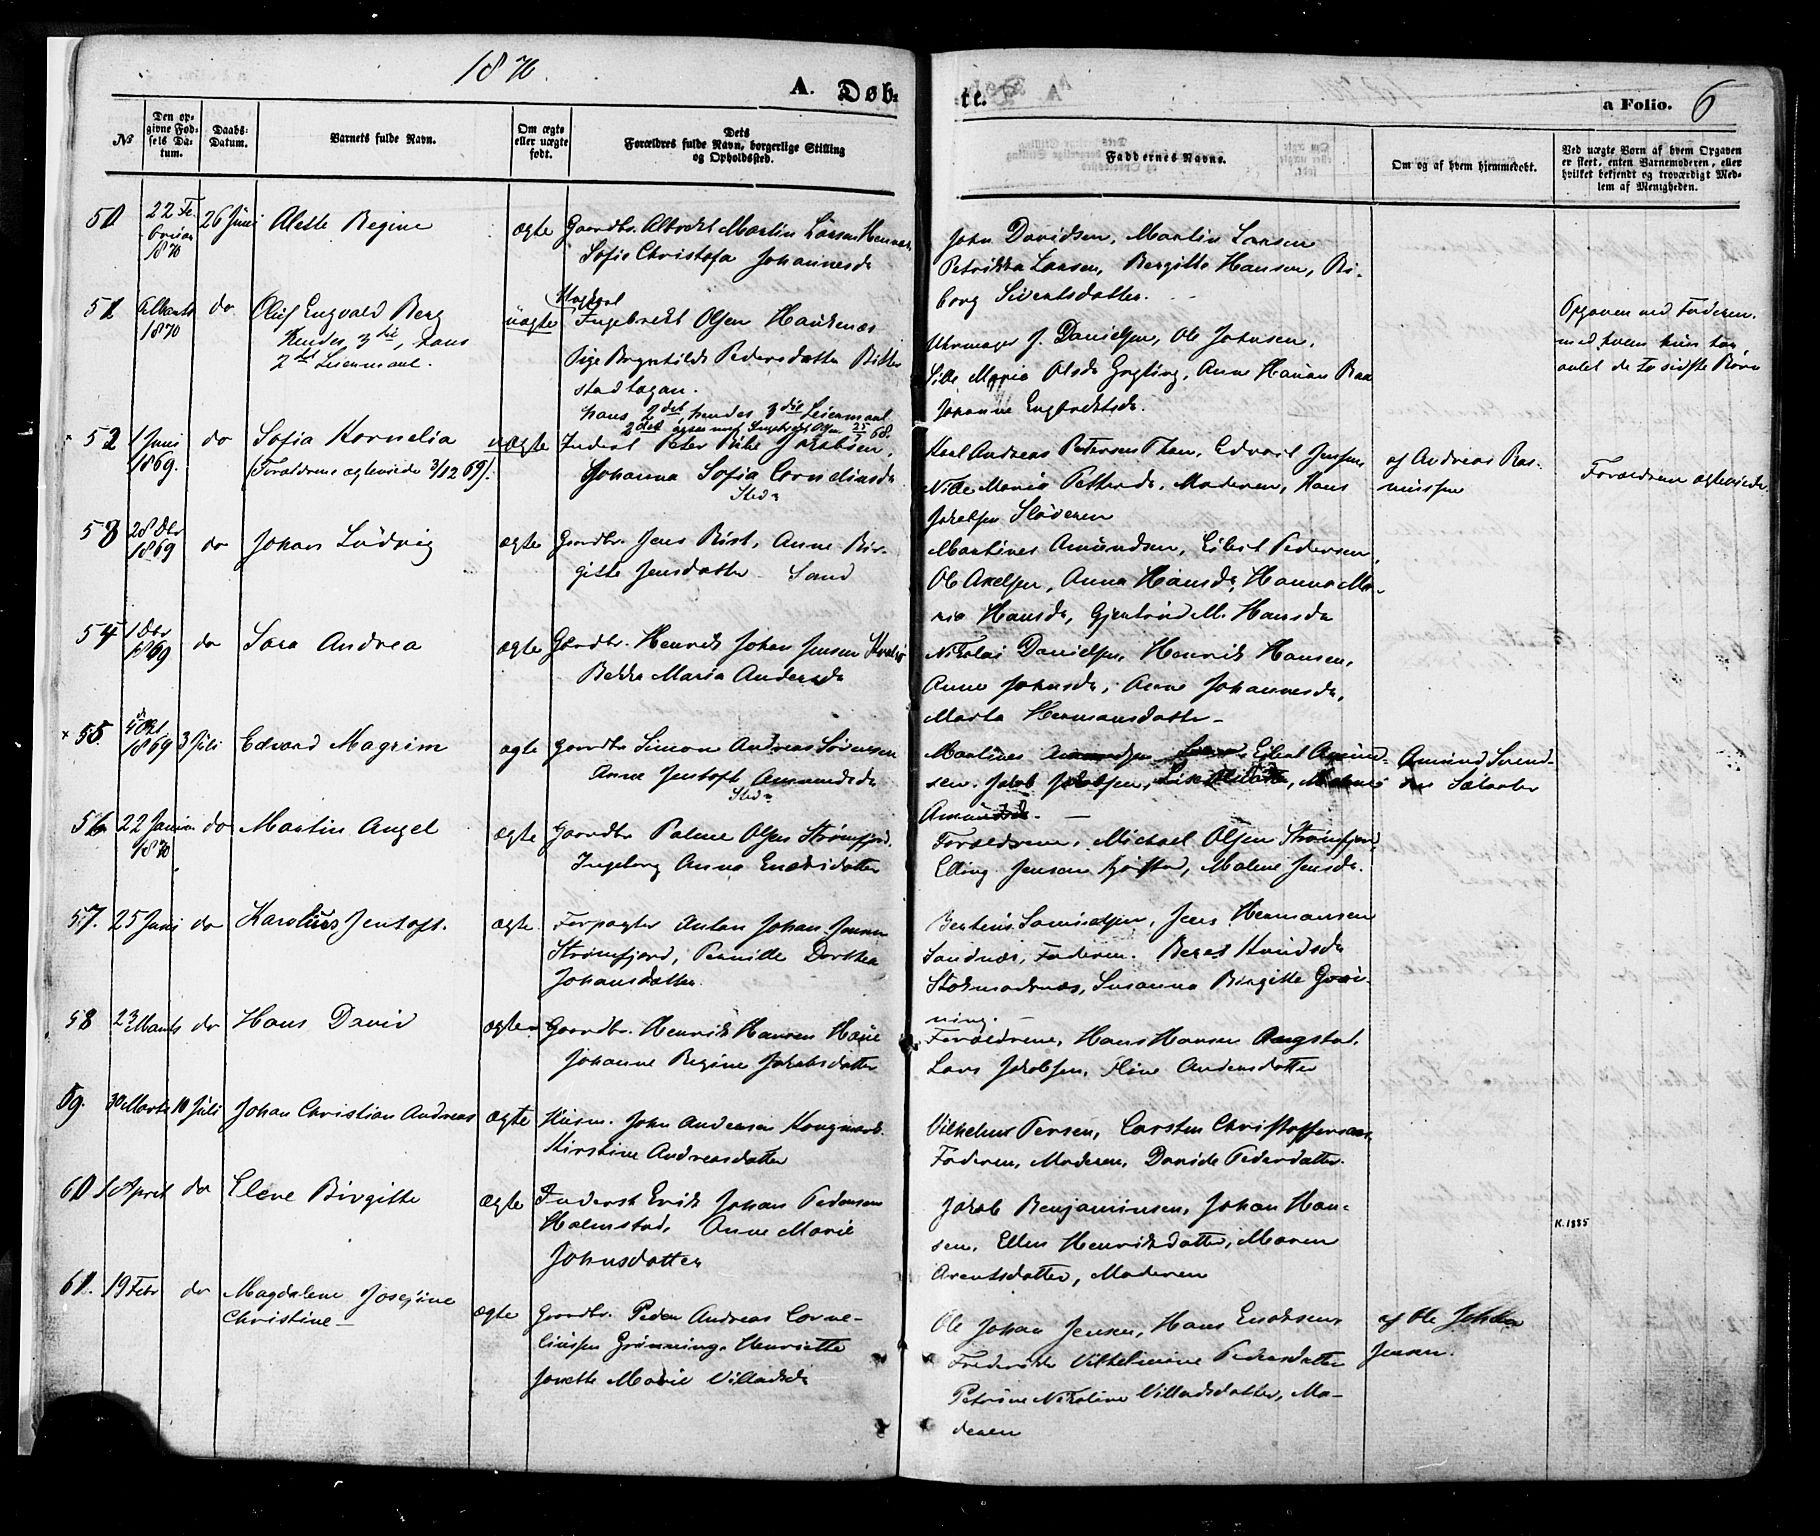 1870.
A. Døb-
te.
a Folio. 6
№
Den op-
givne Fød-
sels Da-
tum.
Daabs-
Datum.
Barnets fulde Navn.
Om ægte
eller uægte
født.
Dets
Forældres fulde Navn, borgerlige Stilling
og Opholdssted.
Faddernes Navne.
Om og af hvem hjemmedøbt.
Ved uægte Børn af hvem Opgaven
er skeet, enten Barnemoderen, eller
hvilket bekjendt og troværdigt Med-
lem af Menigheden.
50
22 Fe-
bruar
1870
26 Juni
Alette Regine
ægte
Gaardbr. Albrekt Martin Larsen
Sofie Christofa Johannesdr
John Davidsen, Martin Larsen
Petrikka Larsen, Bergitte Hansen, Bi-
borg Sivertsdatter.
51
1870
do
Oluf Engvald Berg
Hendes 3die, hans
2det Leiermaal.
uægte
Ingebrekt Olsen Haukenæs
Pige Pedersdatter
hans 2det hendes 3die Leiermaal
Uhrmager J. Danielsen, Ole Johnsen,
Maria Olsdr Anne Hansen
Johanne Engbrektsdr.
Opgaven ved Faderen
med hvem hun har
avlet de to sidste Børn
52
1 Juni
1869.
do
Sofia Kornelia
(Forældrene ægteviede 3/12 69).
uægte
Inderst Peter Jakobsen,
Johanna Sofia Corneliusdr
Karl Andreas Petersen Edvart Jensen
Maria Petersdr, Moderen, Hans
Jakobsen Sløveren
af Andreas Ras-
mussen
Forældrene ægteviede
53
28 Dbr
1869
do
Johan Ludvig
ægte
Gaardbr. Jens Rist, Anne Bir-
gitte Jensdatter Sand
Martines Amundsen, Eilert Pedersen,
Ole Axelsen, Anna Hansdr, Hanna Ma-
ria Hansdr, Gjertrud M. Hansdr
54
1 Dbr
1869
do
Sara Andrea
ægte
Gaardbr. Henrik Johan Jensen
Bekka Maria Andersdr
Nikolai Danielsen, Henrik Hansen,
Anne Johnsdr, Anne Johannesdr,
Marta Hermansdatter
55.
1869
3 Juli
Edvard Magrim
ægte
Gaardbr Simon Andreas Sørensen
Anne Jentoft Amundsdr
Martines Eilert Amund-
sen, Jakob Jakobsen,
Amundsdr.
Amund Svend-
sen
56
22 Januar
1870
do
Martin Angel
ægte
Gaardbr Palme Olsen Strømfjord
Ingeborg Anna
Forældrene, Michael Olsen Strømfjord
Elling Jensen Malene Jensdr.
57.
25 Juni
do
Karolius Jentoft.
ægte.
Forpagter Anton Johan Jensen
Strømfjord, Pernille Dorthea
Johansdatter.
Bertius Samuelsen, Jens Hermansen
Sandnæs, Faderen. Beret Knudsdr
Stokmarknæs, Susanna Birgitte Grøn-
ning.
58
23 Marts
do
Hans David
ægte
Gaardbr. Henrik Hansen
Johanne Regine Jakobsdatter
Forældrene, Hans Hansen
Lars Jakobsen, Andersdatter
59.
30 Marts
10 Juli
Johan Christian Andreas
ægte
Husm. John Andersen Kongmark.
Kirstine Andreasdatter
Vilhelm Persen, Carsten Christoffersen
Faderen, Moderen, Davide Pedersdatter.
60
10 April
do
Elene Birgitte
ægte
Inderst Erik Johan Pedersen
Holmstad, Anne Marie
Johnsdatter
Jakob Benjaminsen, Johan Han-
sen, Ellen Henriksdatter, Maren
Arentsdatter, Moderen
K. 1885
61.
19 Febr
do
Magdalene Josefine
Christine
ægte
Gaardbr. Peder Andreas Corne-
liussen Grønning, Henriette
Jonette Marie Villadsdr
Ole Johan Jensen, Hans Enoksen
Frederikke Vilhelmine Pedersdatter
Petrine Nikoline Villadsdatter, Mo-
deren
af Ole Johan
Jensen.